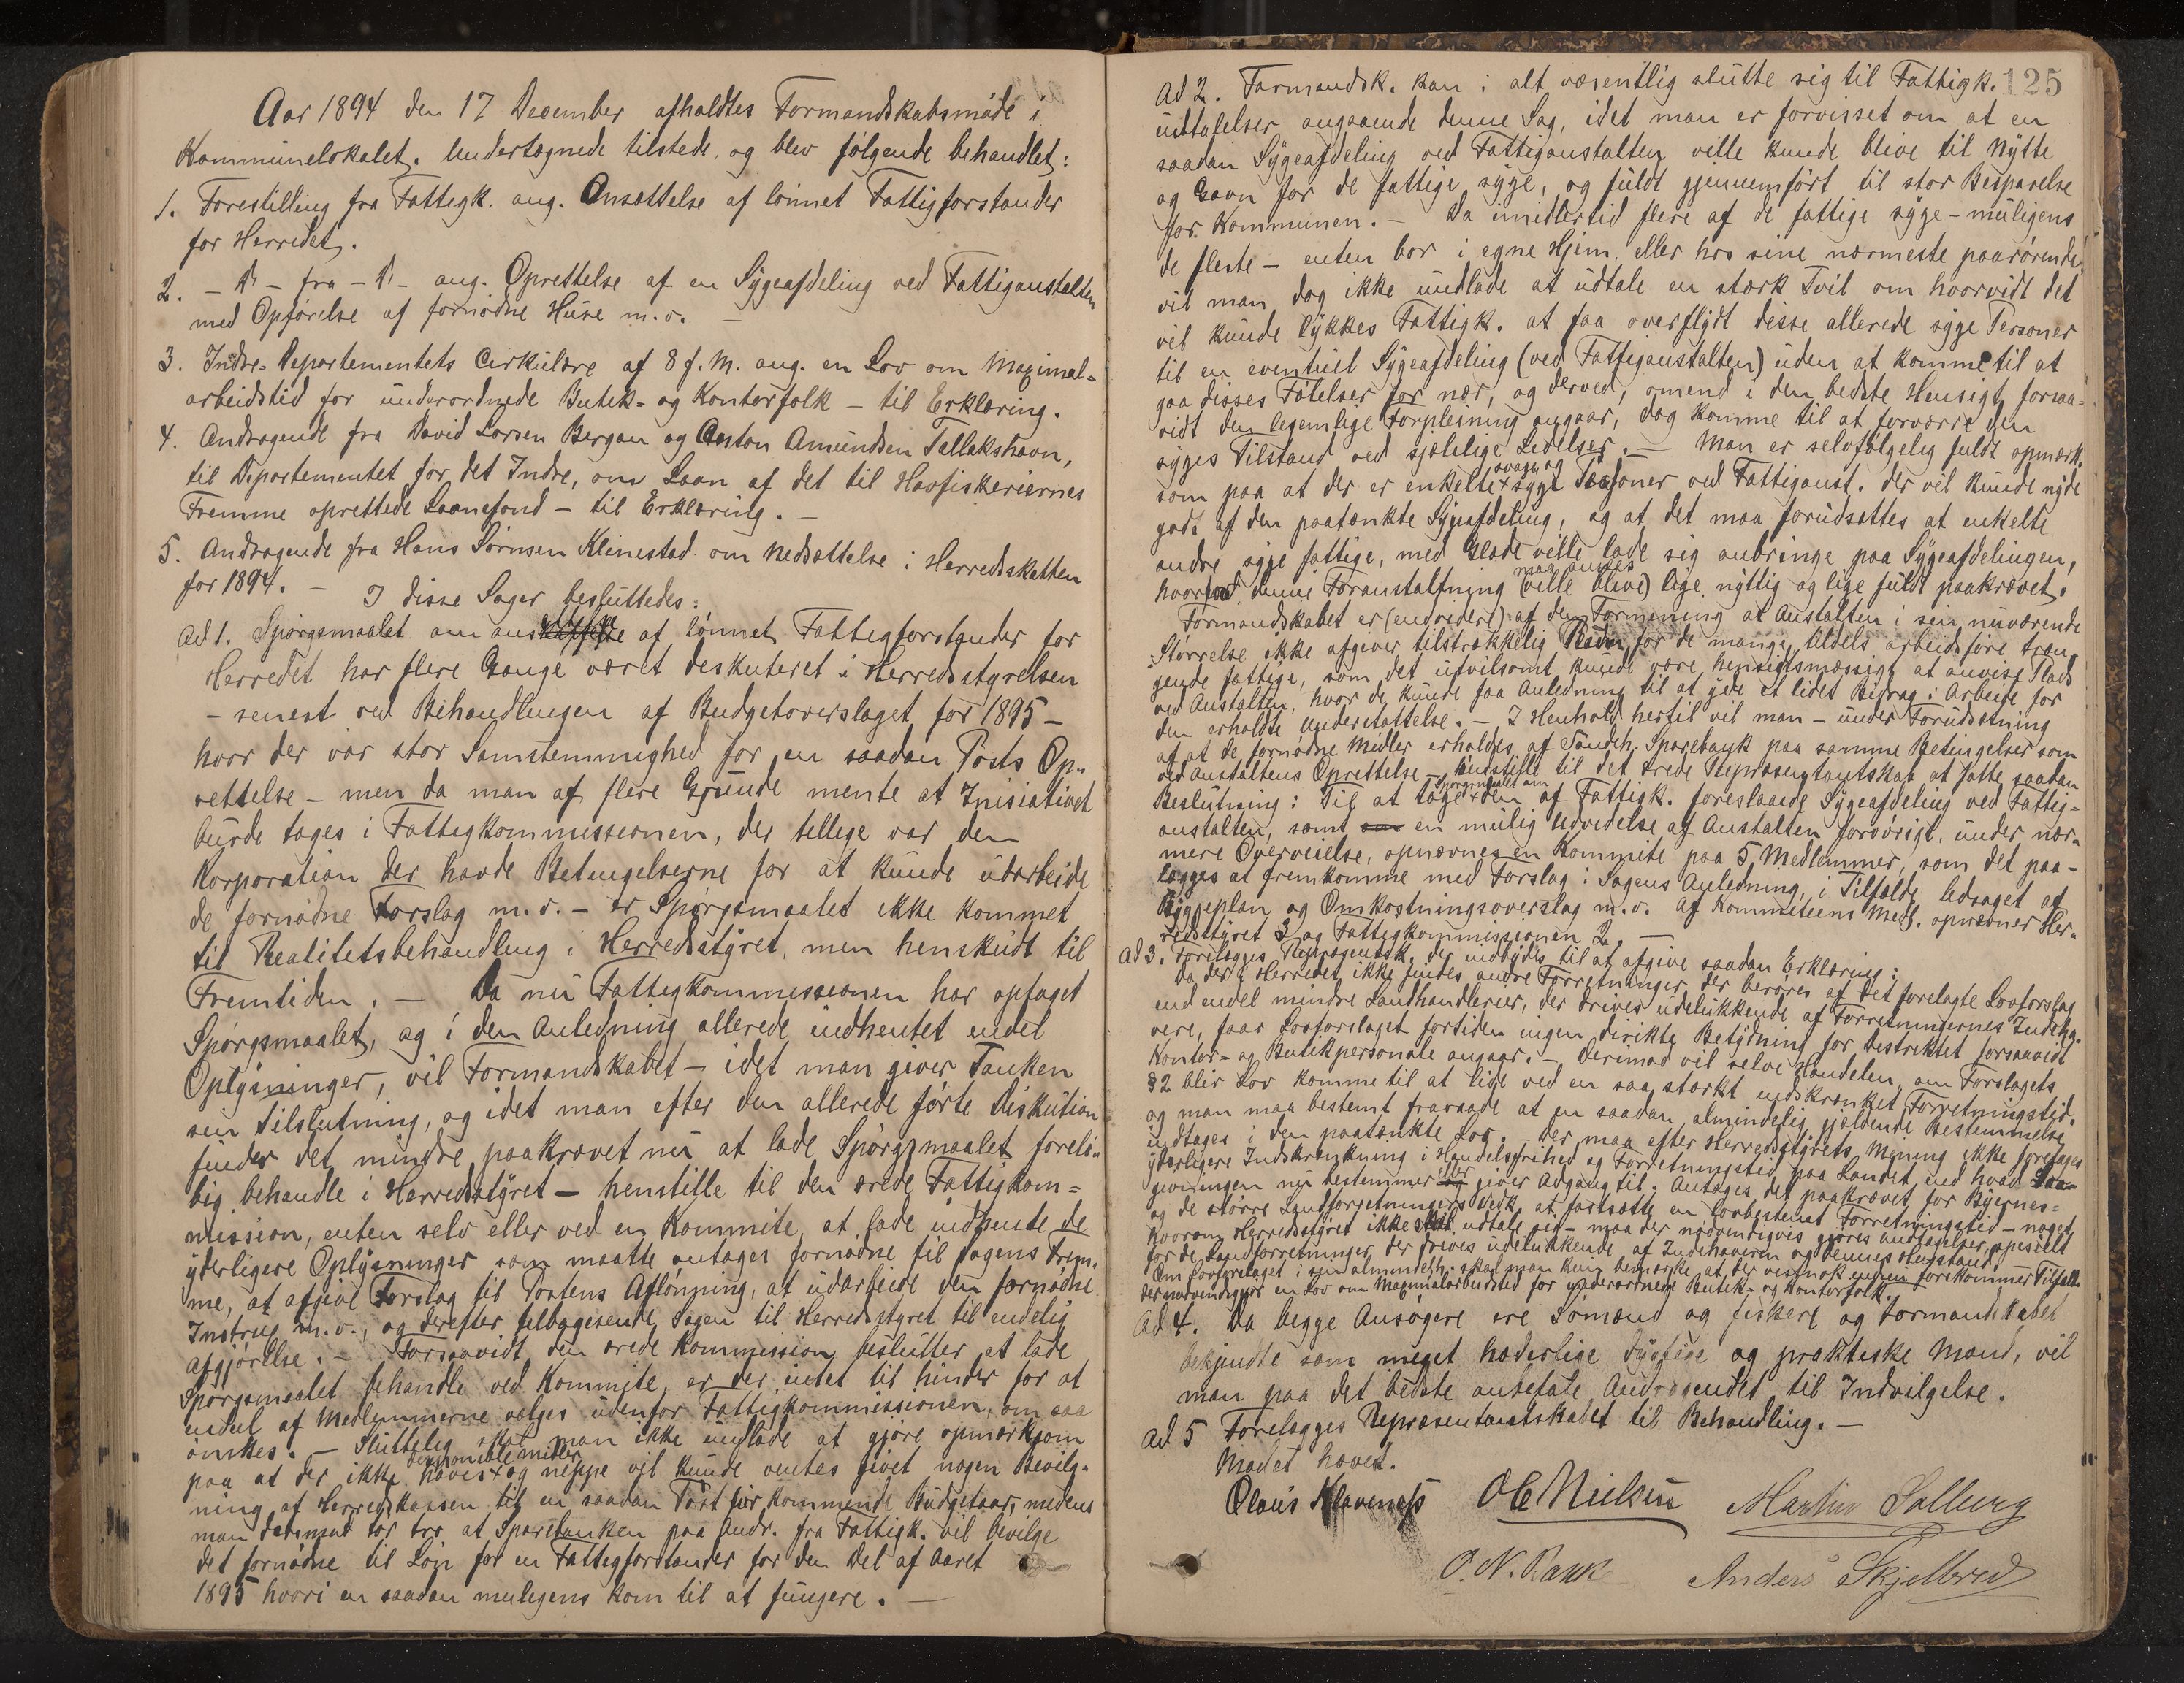 Aar 1894 den 17 December afholdtes Formandskabsmøde i
Kommunelokalet. Undertegnede tilstede, og blev følgende behandlet:
1. Forestilling fra Fattigk. ang. Ansættelse af lønnet Fattigforstander
for Herredet.
2. - Do - fra - Do - ang. Oprettelse af en Sygeafdeling ved Fattiganstalten
med Opførelse af fornødne Huse m. v. -
3. Indre-Departementets Cirkulære af 8 f. M. ang. en Lov om Maximal-
arbeidstid for underordnede Butik- og Kontorfolk - til Erklæring.
4. Andragende fra David Larsen Bergan og Anton Amundsen Tallakshavn,
til Departementet for det Indre, om Laan af det til Havfiskeriernes
Fremme oprettede Laanefond - til Erklæring. -
5. Andragende fra Hans Sørnsen Klinestad om Nedsættelse i Herredsskatten
for 1894. -
I disse Sager besluttedes:
Ad 1. Spørgsmaalet om af lønnet Fattigforstander for
Herredet har flere Gange været deskuteret i Herredsstyrelsen
- senest ved Behandlingen af Budgetoverslaget for 1895 -
hvor der var stor Samstemmighed for en saadan Posts Op-
rettelse - men da man af flere Grunde mente at Inisiativet
burde tages i Fattigkommissionen, der tillige var den
Korporation der havde Betingelserne for at kunde udarbeide
de fornødne Forslag m. v. - er Spørgsmaalet ikke kommet
til Realitetsbehandling i Herredsstyret, men henskudt til
Fremtiden. - Da nu Fattigkommissionen har optaget
Spørgsmaalet, og i den Anledning allerede indhentet endel
Oplysninger, vil Formandskabet - idet man giver Tanken
sin Tilslutning, og idet man efter den allerede førte Diskution
finder det mindre paakrævet nu at lade Spørgsmaalet forelø-
big behandle i Herredsstyret - henstille til den ærede Fattigkom-
mission, enten selv eller ved en Kommite, at lade indhente de
yderligere Oplysninger som maatte antages fornødne til Sagens Frem-
me, at afgive Forslag til Postens Aflønning, at udarbeide den fornødne
Instrux m. v., og derefter tilbagesende Sagen til Herredsstyret til endelig
afgjørelse. - Forsaavidt den ærede Kommission beslutter at lade
Spørgsmaalet behandle ved Kommite, er der intet til hinder for at
endel af Medlemmerne vælges udenfor Fattigkommissionen, om saa
ønskes. - Sluttelig skal man ikke undlade at gjøre opmærksom
paa at der ikke haves disponible midler og neppe vil kunde ventes givet nogen Bevilg-
ning af Herredskassen til en saadan Post for kommende Budgetaar, medens
man derimod tør tro at Sparebanken paa Andr. fra Fattigk. vil bevilge
det fornødne til Løn for en Fattigforstander for den Del af Aaret
1895 hvori en saadan muligens kom til at fungere. -
125
Ad 2. Formandsk. kan i alt væsentlig slutte sig til Fattigk.
udtalelser angaaende denne Sag, idet man er forvisset om at en
saadan Sygeafdeling ved Fattiganstalten ville kunde blive til Nytte
og Gavn for de fattige syge, og fuldt gjennemført til stor Besparelse
for Kommunen. - Da imidlertid flere af de fattige syge - muligens
de fleste - enten bor i egne Hjem, eller hos sine nærmeste paarørende,
vil man dog ikke undlade at udtale en stærk Tvil om hvorvidt det
vil kunde lykkes Fattigk. at faa overflydt disse allerede syge Personer
til en eventuel Sygeafdeling (ved Fattiganstalten) uden at komme til at
gaa disses Følelser for nær, og derved, omend i den bedste Hensigt, forsaa-
vidt den legemlige Forpleining angaar, dog komme til at forværre den
syges Tilstand ved sjælelige Lidelser. - Man er selvfølgelig fuldt opmærk-
som paa at der er enkelte svage og syge Personer ved Fattiganst. der vil kunde nyde
godt af den paatænkte Sygeafdeling, og at det maa forudsættes at enkelte
andre syge fattige, med Glæde ville lade sig anbringe paa Sygeafdelingen,
hvorfor denne Foranstaltning maa ansees (ville blive) lige nyttig og lige fuldt paakrævet.
Formandskabet er (endvidere) af den Formening at Anstalten i sin nuværende
Størrelse ikke afgiver tilstrækkelig for de mange, tildels arbeidsføre træn-
gende fattige, som det utvilsomt kunde være hensigtsmæssigt at anvise Plads
ved Anstalten, hvor de kunde faa Anledning til at yde et lidet Bidrag i Arbeide for
den erholdte Understøttelse. - I Henhold hertil vil man - under Forudsætning
af at de fornødne Midler erholdes af Sandeh. Sparebank paa samme Betingelser som
ved Anstaltens Oprettelse - henstille til det ærede Repræsentantskab at fatte saadan
Beslutning: Til at tage Spørgsmaalet om den af Fattigk. foreslaaede Sygeafdeling ved Fattig-
anstalten, samt en mulig Udvidelse af Anstalten forøvrigt, under nær-
mere Overveielse, opnævnes en Kommite paa 5 Medlemmer, som det paa-
lægges at fremkomme med Forslag i Sagens Anledning, i Tilfælde ledsaget af
Byggeplan og Omkostningsoverslag m. v. Af Kommiteens Medl. opnævner Her-
redsstyret 3 og Fattigkommissionen 2. -
Ad 3. Forelægges Repræsentsk. der indbydes til at afgive saadan Erklæring:
Da der i Herredet ikke findes andre Forretninger der berøres af det forelagte Lovforslag
end endel mindre Landhandlerier, der drives udelukkende af Forretningernes Indeha-
vere, faar Lovforslaget fortiden ingen direkte Betydning for Distriktet forsaavidt
Kontor- og Butikpersonale angaar. - Derimod vil selve Handelen, om Forslagets
§ 2 blir Lov komme til at lide ved en saa stærkt indskrænket Forretningstid.
og man maa bestemt fraraade at en saadan almindelig gjældende Bestemmelse
indtages i den paatænkte Lov. - Der maa efter Herredsstyrets Mening ikke foretages
yderligere Indskrænkning i Handelsfrihed og Forretningstid paa Landet, end hvad Lov-
givningen nu bestemmer eller giver Adgang til. Antages det paakrævet for Byernes-
og de større Landforretningers Vedk. at fortsætte en lovbestemt Forretningstid - noget
hvorom Herredsstyret ikke skal udtale sig - maa der nødvendigvis gjøres undtagelser, spesielt
for de Landforretninger, der drives udelukkende af Indehaveren og dennes Husstand.
Om Lovforslaget i sin almindelh. skal man kun bemærke, at der vistnok forekommer Tilfælde
der nødvendiggjør en Lov om Maximalarbeidstid for underordnede Butik- og Kontorfolk.
Ad 4. Da begge Ansøgere ere Sømænd og fiskere og Formandskabet
bekjendte som meget hæderlige dygtige og praktiske Mænd, vil
man paa det bedste anbefale Andragendet til Indvilgelse.
Ad 5 Forelægges Repræsentantskabet til Behandling. -
Mødet hævet.
Claus Klaveness O C Nielsen Martin Solberg
O. N. Bakke Anders Skjelbred